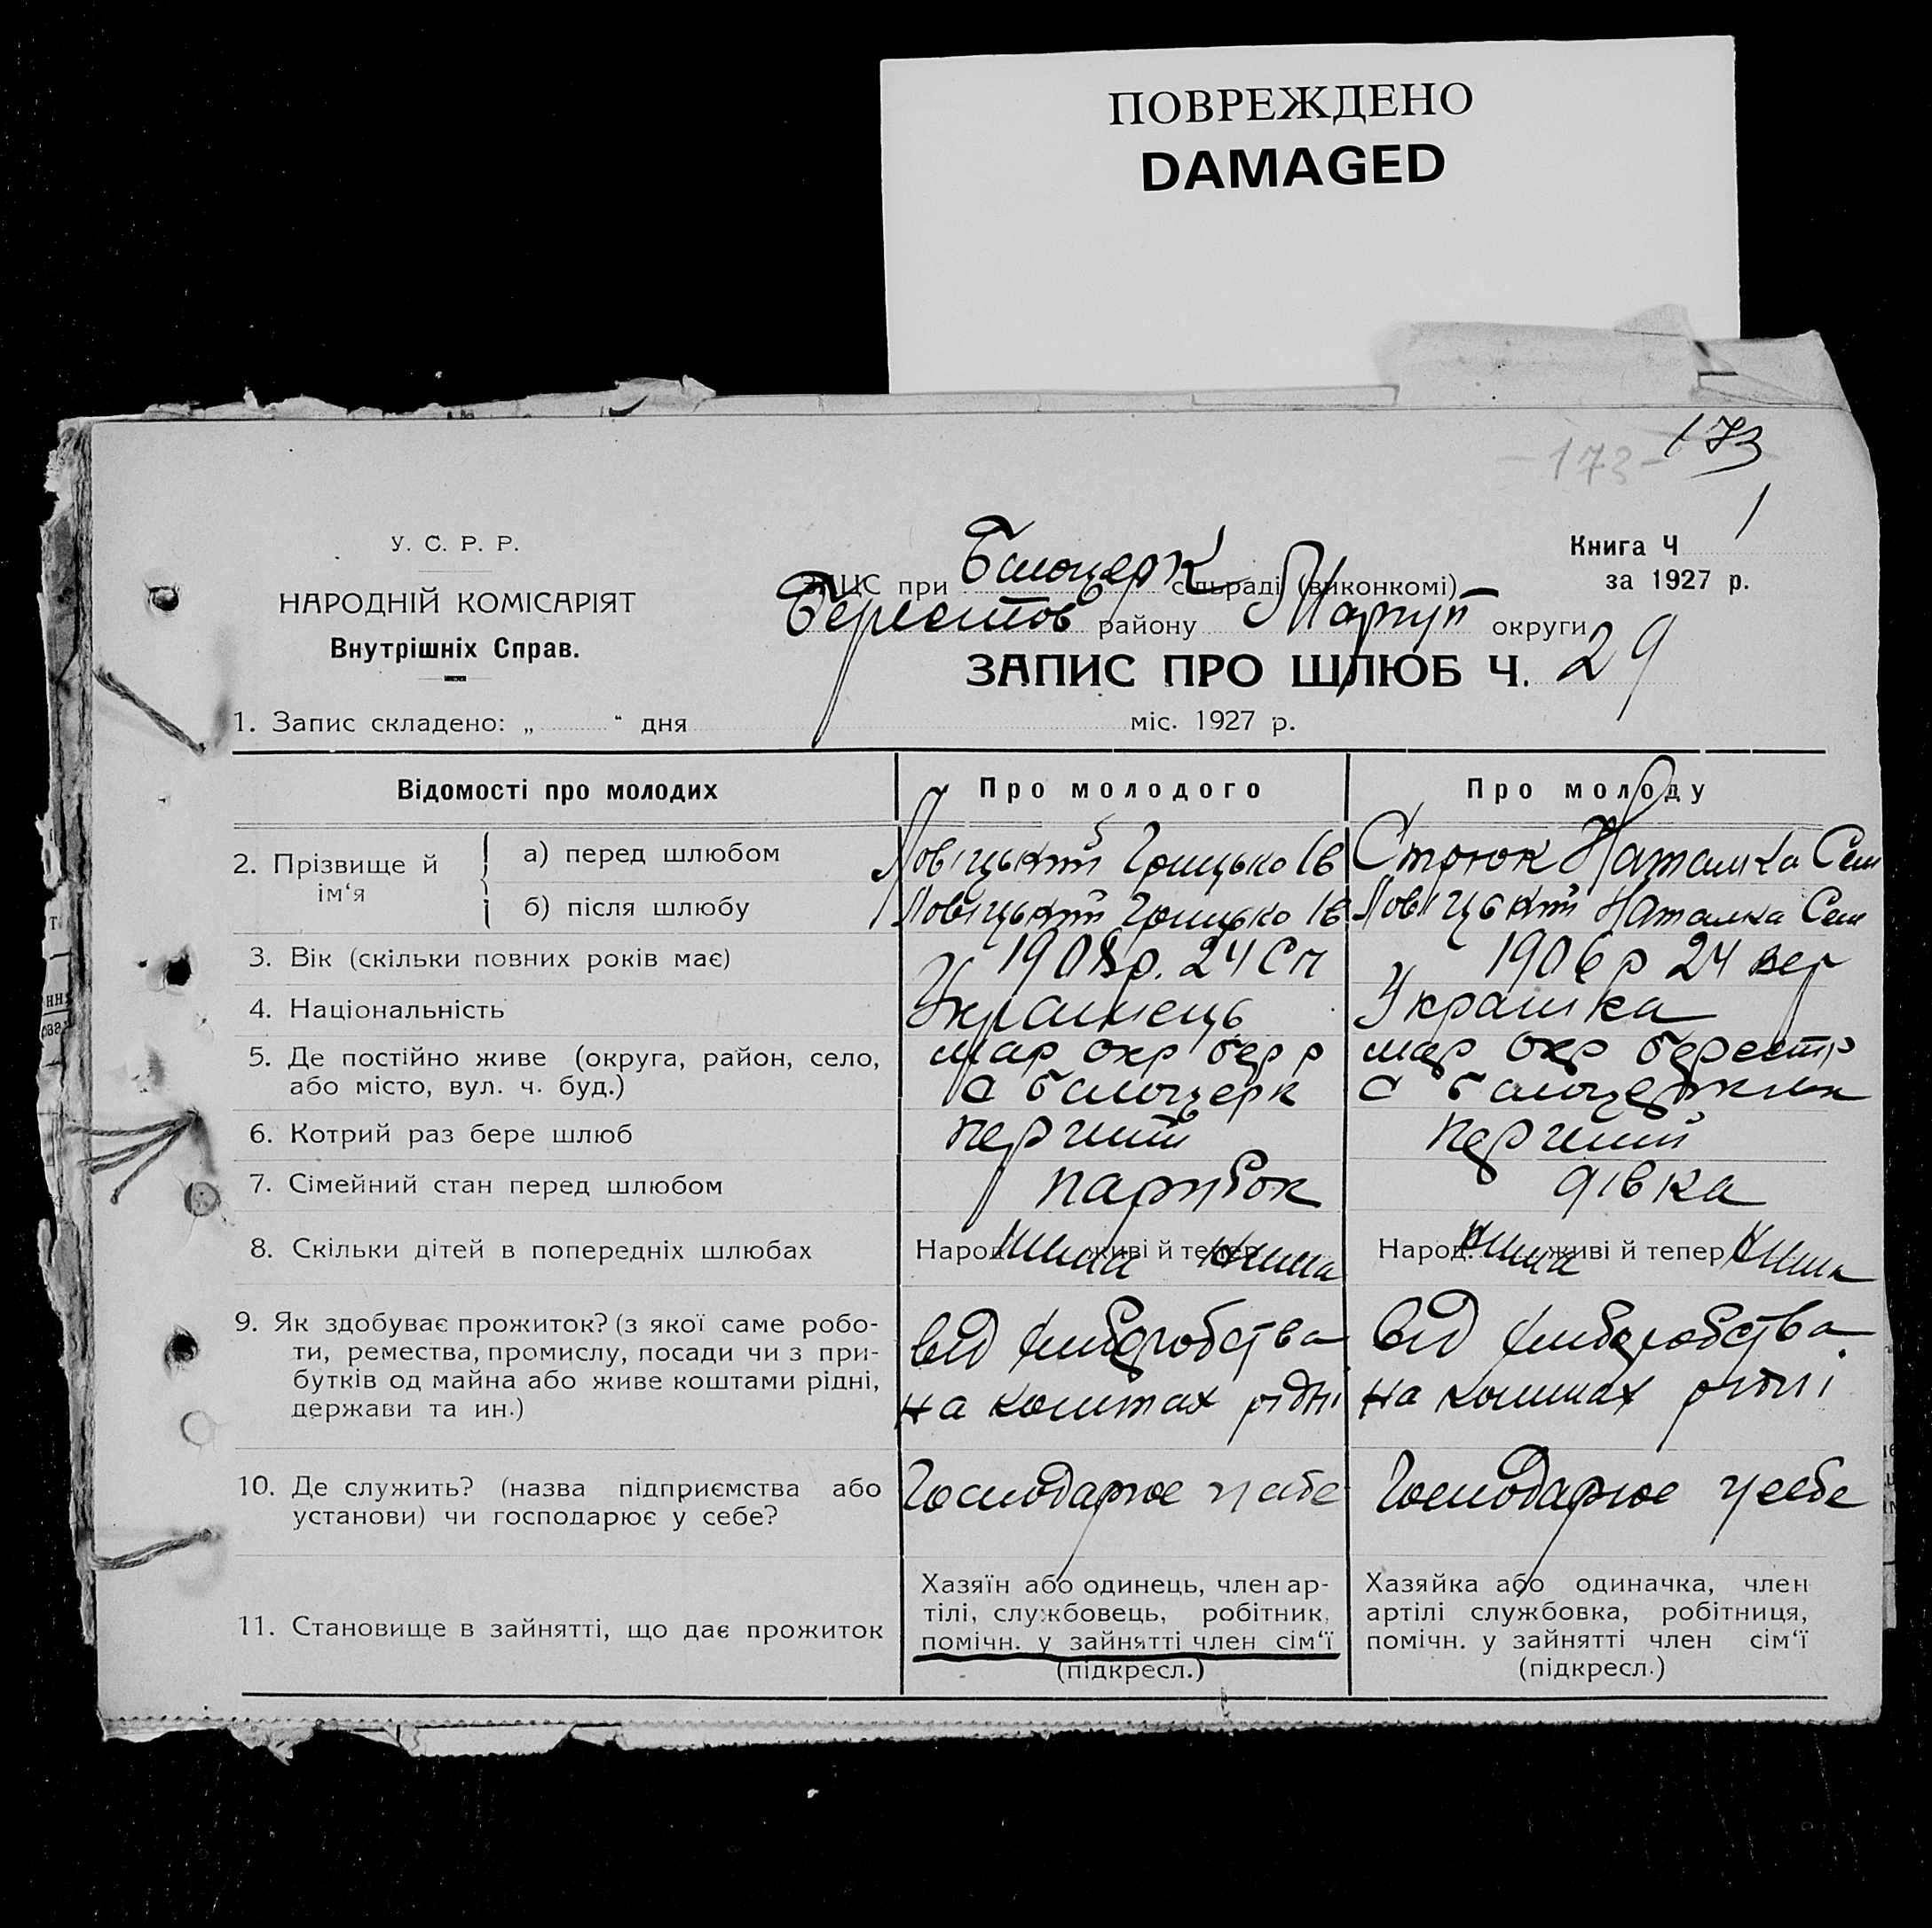 ПОВРЕЖДЕНО
DAMAGED
173
-173-
У. С. Р. Р.
НАРОДНІЙ КОМІСАРІЯТ
Внутрішніх Справ.
Книга Ч 1
за 1927 р.
ЗАЦС при Білоцерк сільраді (виконкомі)
Берестов району Маріуп округи
ЗАПИС ПРО ШЛЮБ Ч. 29
1. Запис складено: „ “ дня міс. 1927 р.
Відомості про молодих Про молодого Про молоду
2. Прізвище й ім‘я
а) перед шлюбом Грицько Ів Стрюк Наталка Сем
б) після шлюбу Грицько Ів Наталка Сем
3. Вік (скільки повних років має) 24 1906 р 24 вер
4. Національність Українець Українка
5. Де постійно живе (округа, район, село, мар окр бер р мар окр берест р
або місто, вул. ч. буд.) с білоцерк с
6. Котрий раз бере шлюб перший перший
7. Сімейний стан перед шлюбом парубок дівка
8. Скільки дітей в попередніх шлюбах Народ. нима живі й тепер нима Народ. нима живі й тепер нима
9. Як здобуває прожиток? (з якої саме робо-
ти, ремества, промислу, посади чи з при- від хлиборобства від хлиборобства
бутків од майна або живе коштами рідні, на коштах рідні на коштах рідні
держави та ин.)
10. Де служить? (назва підприємства або Господарює у себе Господарює у себе
установи) чи господарює у себе?
11. Становище в зайнятті, що дає прожиток
Хазяїн або одинець, член ар-
тілі, службовець, робітник,
помічн. у зайнятті член сім‘ї
(підкресл.)
Хазяйка або одиначка, член
артілі службовка, робітниця,
помічн. у зайнятті член сім‘ї
(підкресл.)